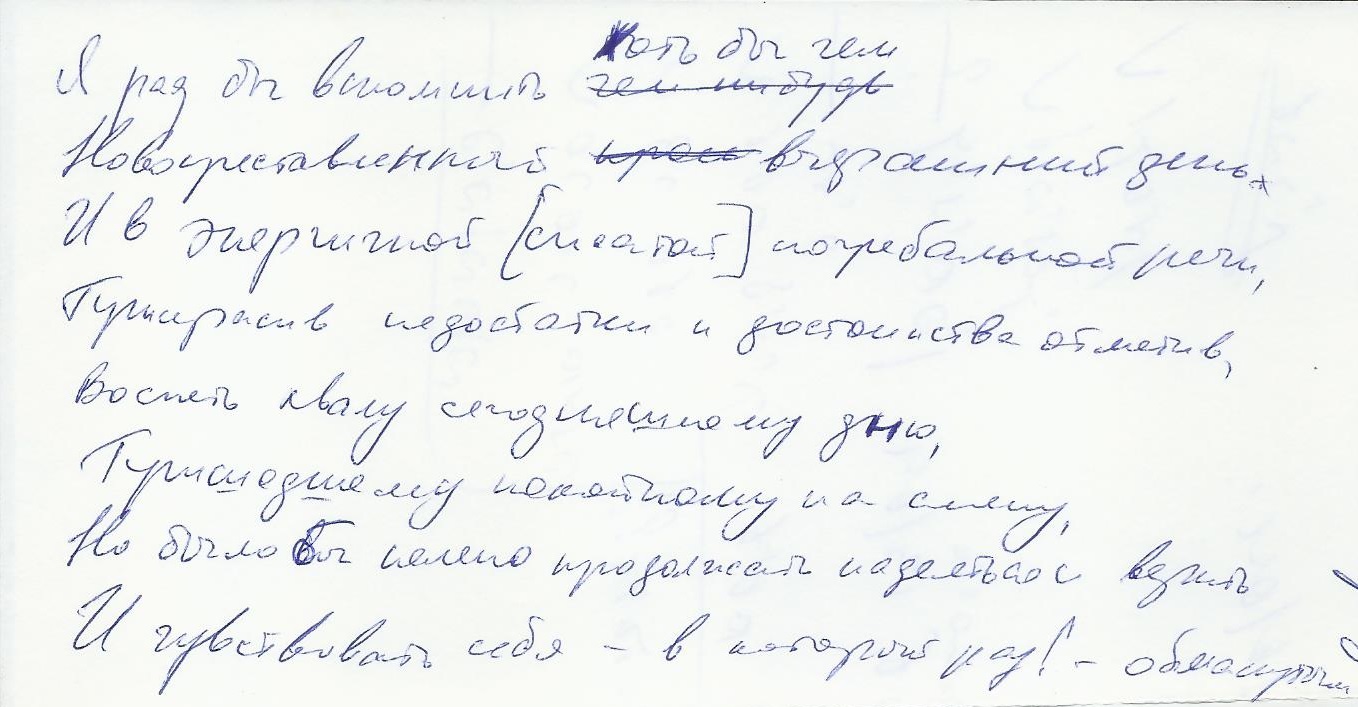 Хоть бы чем
Я рад бы вспомнить чем нибудь
Новопреставленный вчерашний день
И в энергичной [сжатой] погребальной речи,
Приукрасив недостатки и достоинства отметив,
Воспеть хвалу сегодняшнему дню,
Пришедшему покойному на смену,
Но было бы нелепо продолжать надеяться и верить
И чувствовать себя – в который раз! – обманутым